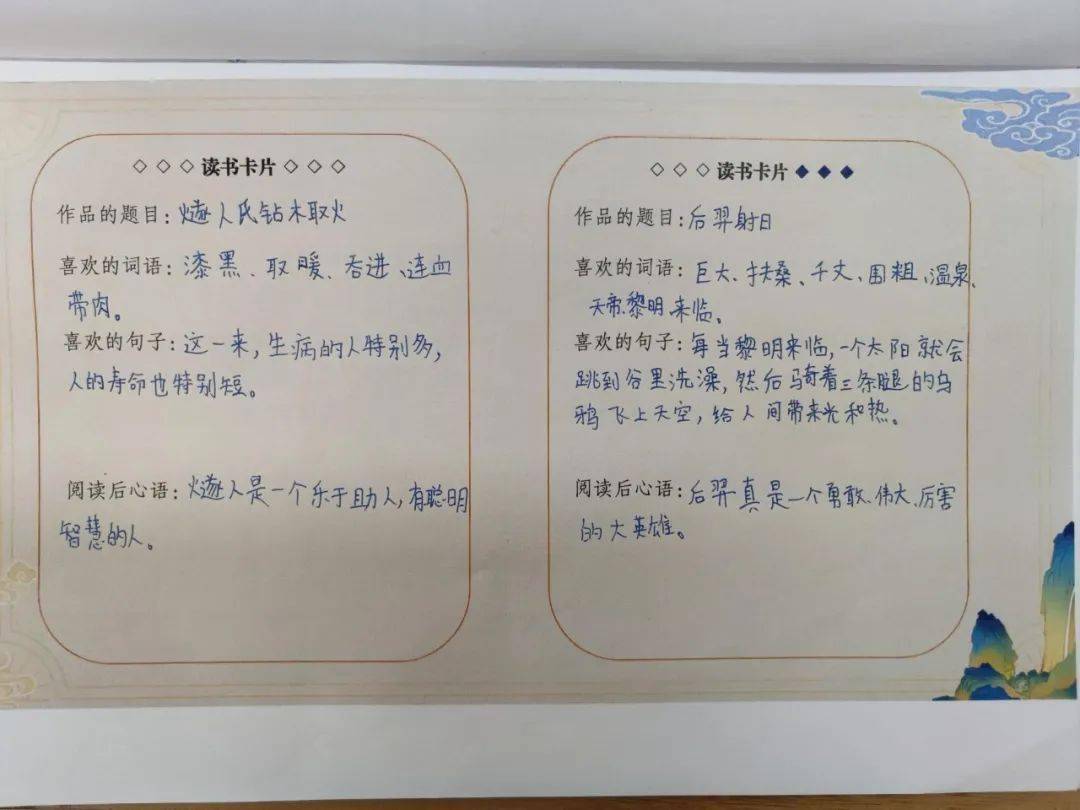 ◇ ◇ ◇ 读书卡片 ◇ ◇ ◇
作品的题目：燧人氏钻木取火
喜欢的词语：漆黑、取暖、吞进、连血
带肉。
喜欢的句子：这一来，生病的人特别多，
人的寿命也特别短。
阅读后心语：燧人是一个乐于助人，有聪明
智慧的人。
◇ ◇ ◇ 读书卡片 ◆ ◆ ◆
作品的题目：后羿射日
喜欢的词语：巨大、扶桑、千丈、围粗、温泉、
天帝、黎明来临。
喜欢的句子：每当黎明来临，一个太阳就会
跳到谷里洗澡，然后骑着三条腿的乌
鸦飞上天空，给人间带来光和热。
阅读后心语：后羿真是一个勇敢、伟大、厉害
的大英雄。